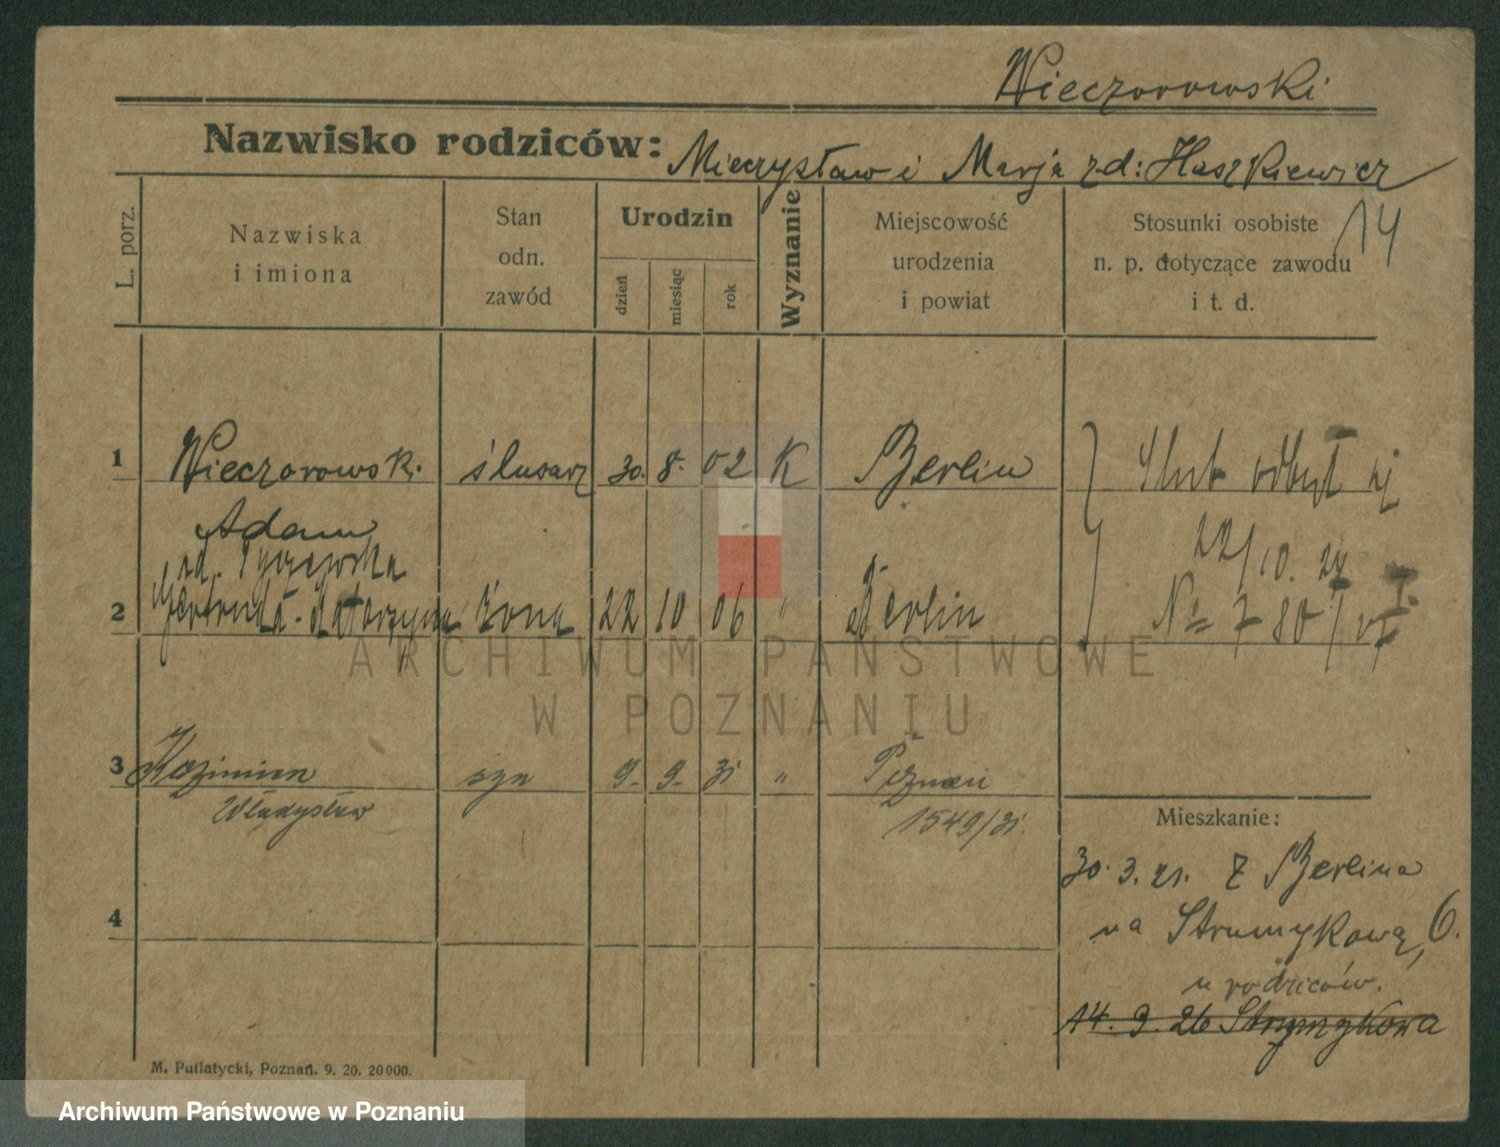 Wieczorowski
Nazwisko rodziców: Mieczysław i Marja zd: Haszkiewicz
14
L. porz.
Nazwiska
i imiona
Stan
odn.
zawód
Urodzin
dzień
miesiąc
rok
Wyznanie
Miejscowość
urodzenia
i powiat
Stosunki osobiste
n. p. dotyczące zawodu
i t. d.
1 Wieczorowski ślusarz 30. 8. 02 K Berlin
Adam
Ślub odbył się
22/10. 24
zd.
2 Gertruda-Katarzyna żona 22 10 06 " Berlin
No 780/
ARCHIWUM PAŃSTWOWE
W POZNANIU
3 Kazimierz syn 9. 9. 31 " Poznań
Władysław
1549/31.
Mieszkanie:
30. 3. 21. z Berlina
na Strumykową, 6.
u rodziców.
14. 9. 26 Strumykowa
4
M. Putiatycki, Poznań. 9. 20. 20000.
Archiwum Państwowe w Poznaniu